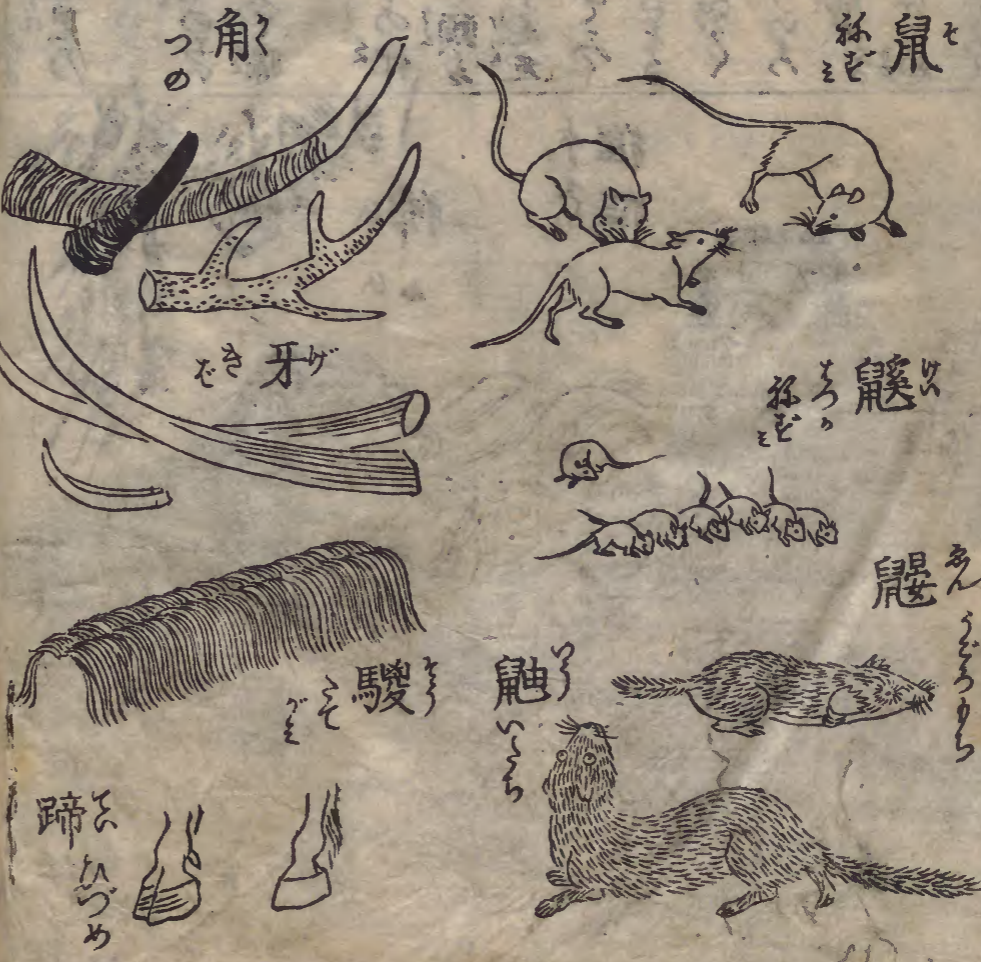 鼠 そ
ねずみ
鼷 けい
はつか
ねずみ
鼴 ゑん
うごろもち
鼬 いう
いたち
角 かく
つの
牙 げ
きば
騣 そう
たて
がみ
蹄 てい
ひづめ